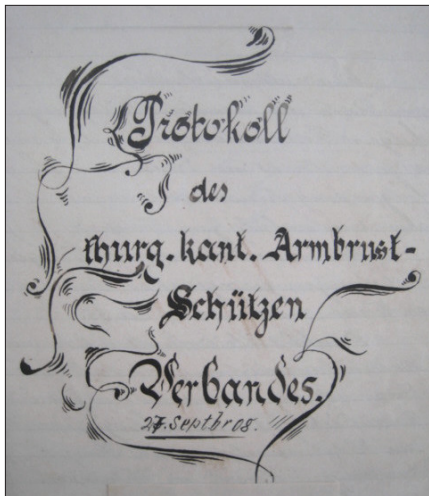 Protokoll
des
thurg. kant. Armbrust-
Schützen
Verbandes.
27. Septbr 08.